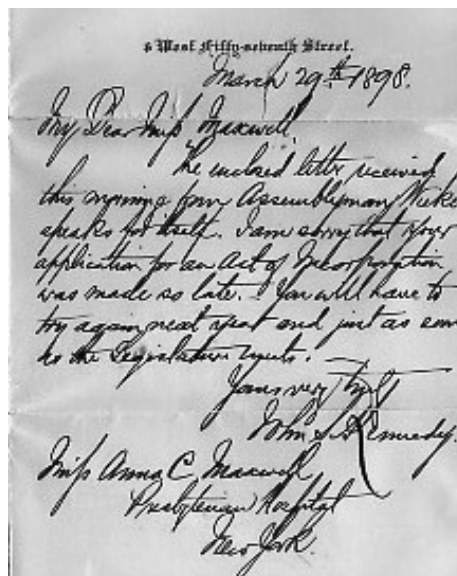 6 West Fifty-seventh Street.
March 29th 1898.
My Dear Miss Maxwell,
The enclosed letter received
this morning from Assemblyman Weeke
speaks for itself. I am sorry that your
application for an Act of Incorporation
was made so late. You will have to
try again next year and just as soon
as the Legislature meets.
Yours very truly
John S. Kennedy.
Miss Anna C. Maxwell,
Presbyterian Hospital
New York.